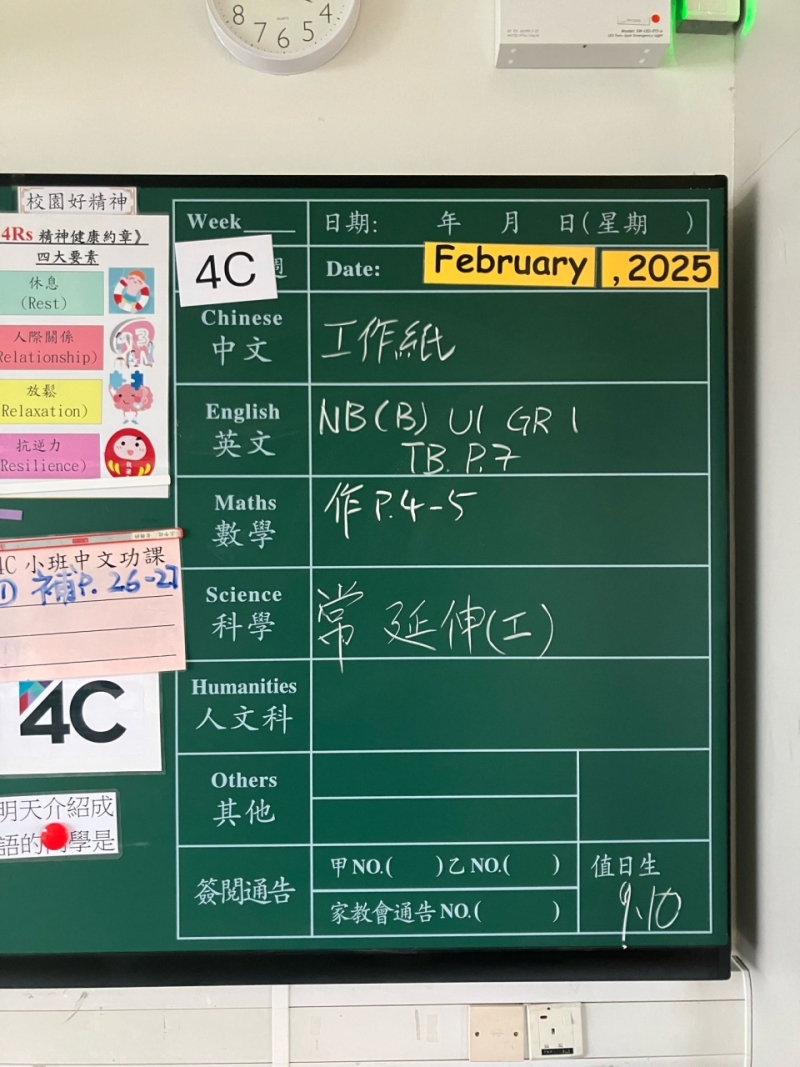 8 7 6 5 4
校園好精神
4Rs 精神健康約章》
四大要素
休息
(Rest)
人際關係
Relationship)
放鬆
Relaxation)
抗逆力
Resilience)
4C 小班中文功課
① 補P. 26-27
4C
明天介紹成
語的 學是
Week_____ 日期: 年 月 日(星期 )
4C 週 Date: February , 2025
Chinese
中文
工作紙
English
英文
NB(B) U1 GR 1
TB. P.7
Maths
數學
作 P.4-5
Science
科學
常 延伸(工)
Humanities
人文科
Others
其他
簽閱通告
甲NO.( )乙NO.( )
家教會通告NO.( )
值日生
9.10